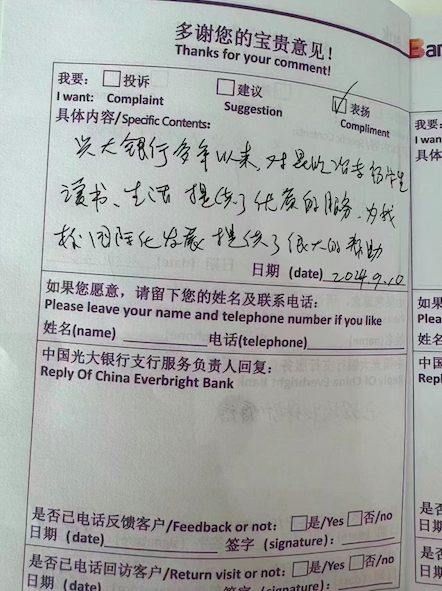 多谢您的宝贵意见！
Thanks for your comment!
我要： 投诉 建议 表扬
I want: Complaint Suggestion Compliment
具体内容/Specific Contents:
光大银行多年以来，对昆明冶专留学生
读书、生活 提供了优质的服务，为我
校国际化发展 提供了很大的帮助
日期 (date) 2024.9.10
如果您愿意，请留下您的姓名及联系电话：
Please leave your name and telephone number if you like
姓名(name) 电话(telephone)
中国光大银行支行服务负责人回复：
Reply Of China Everbright Bank
是否已电话反馈客户/Feedback or not: 是/Yes 否/no
日期 (date) 签字 (signature)：
是否已电话回访客户/Return visit or not: 是/Yes 否/no
日期 (date) 签字 (signature)：